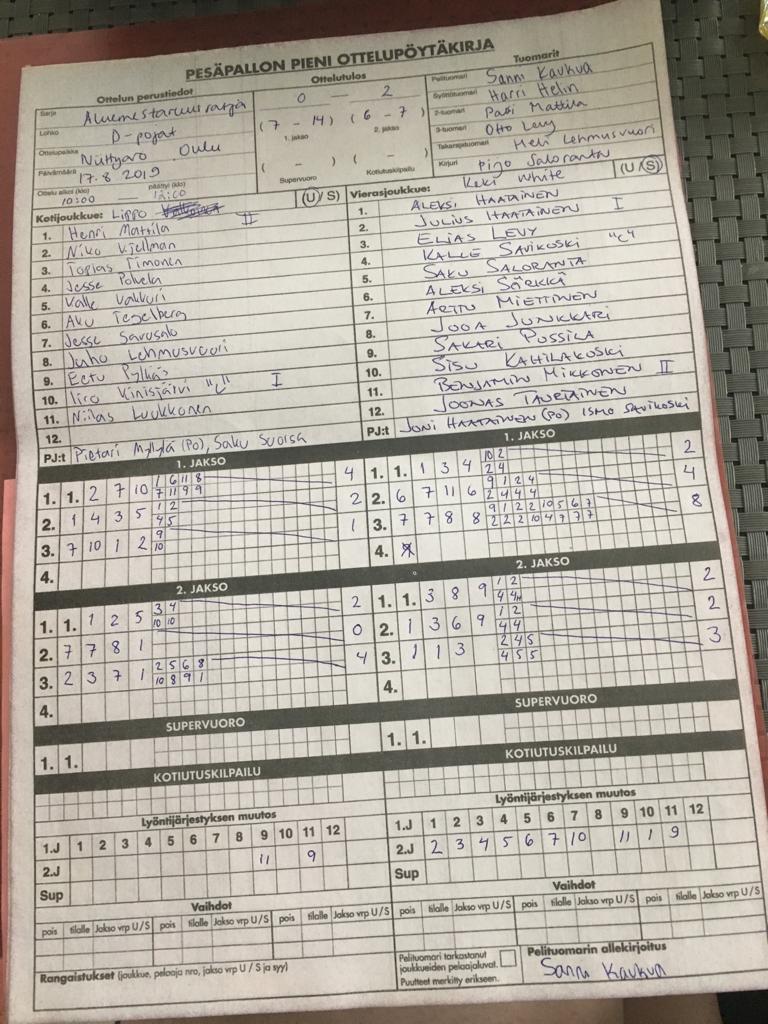 PESÄPALLON PIENI OTTELUPÖYTÄKIRJA
Ottelun perustiedot
Sarja Aluemestaruussarja
Lohko D-pojat
Ottelupaikka Oulu
Päivämäärä 17.8 2019
Ottelu alkoi (klo) 10:00 — päättyi (klo) 12:00
Ottelutulos
0 — 2
(7 - 14) (6 - 7)
1. jakso 2. jakso
( - ) ( - )
Supervuoro Kotiutuskilpailu
Tuomarit
Pelituomari Sanni Kaukua
Syöttötuomari Harri Helin
2-tuomari Patti Mattila
3-tuomari Otto Levy
Takarajatuomari Meri Lehmusvuori
Kirjuri Pirjo Saloranta
Kotijoukkue: Lippo II (U/S)
1. Henri Mattila
2. Niko Kjellman
3. Topias Timonen
4. Jesse Pohjela
5. Valle Vakkuri
6. Aku Tegelberg
7. Jesse Savusalo
8. Juho Lehmusvuori
9. Eetu Pylkäs
10. Iiro Kinisjärvi "C" I
11. Niilas Luukkonen
12.
PJ:t Pietari Myllylä (PO), Saku Suorsa
Vierasjoukkue: Keki White (U/S)
1. ALEKSI HAATAINEN
2. JULIUS HAATAINEN I
3. ELIAS LEVY
4. KALLE SAVIKOSKI "C"
5. SAKU SALORANTA
6. ALEKSI SÄRKKÄ
7. ARTTU MIETTINEN
8. JOOA JUNKKARI
9. SAKARI PUSSILA
10. SISU KAHILAKOSKI
11. BENJAMIN MIKKONEN II
12. JOONAS TAURIAINEN
PJ:t JONI HAATAINEN (PO) ISMO SAVIKOSKI
1. JAKSO
1. 1. 2 7 10 1 6 11 8 4
7 11 9 9
2. 1 4 3 5 1 2 2
4 5
3. 7 10 1 2 9 1
10
4.
1. JAKSO
1. 1. 1 3 4 10 2 2
2 4
2. 6 7 11 6 9 1 2 4 4
2 4 4 4
3. 7 7 8 8 9 1 2 2 10 5 6 7 8
2 2 2 10 4 7 7 7
4.
2. JAKSO
1. 1. 1 2 5 3 4 2
10 10
2. 7 7 8 1 0
3. 2 3 7 1 2 5 6 8 4
10 8 9 1
4.
2. JAKSO
1. 1. 3 8 9 1 2 2
4 4
2. 1 3 6 9 1 2 2
4 4
3. 1 1 3 2 4 5 3
4 5 5
4.
SUPERVUORO
1. 1.
SUPERVUORO
1. 1.
KOTIUTUSKILPAILU
KOTIUTUSKILPAILU
Lyöntijärjestyksen muutos
1.J 1 2 3 4 5 6 7 8 9 10 11 12
2.J 11 9
Sup
Lyöntijärjestyksen muutos
1.J 1 2 3 4 5 6 7 8 9 10 11 12
2.J 2 3 4 5 6 7 10 11 1 9
Sup
Vaihdot
pois tilalle Jakso vrp U/S pois tilalle Jakso vrp U/S pois tilalle Jakso vrp U/S
Vaihdot
pois tilalle Jakso vrp U/S pois tilalle Jakso vrp U/S pois tilalle Jakso vrp U/S
Rangaistukset (joukkue, pelaaja nro, jakso vrp U / S ja syy)
Pelituomari tarkastanut
joukkueiden pelaajaluvat.
Puutteet merkitty erikseen.
Pelituomarin allekirjoitus
Sanni Kaukua